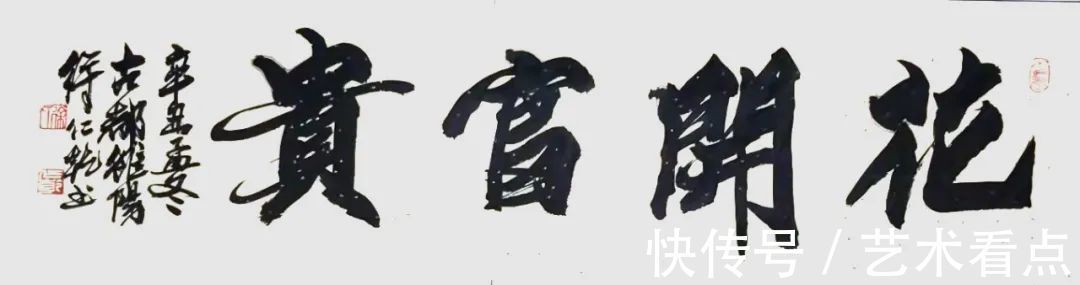 花開富貴
辛丑孟冬
古都雒陽
徐仁乾书
快传号 / 艺术看点